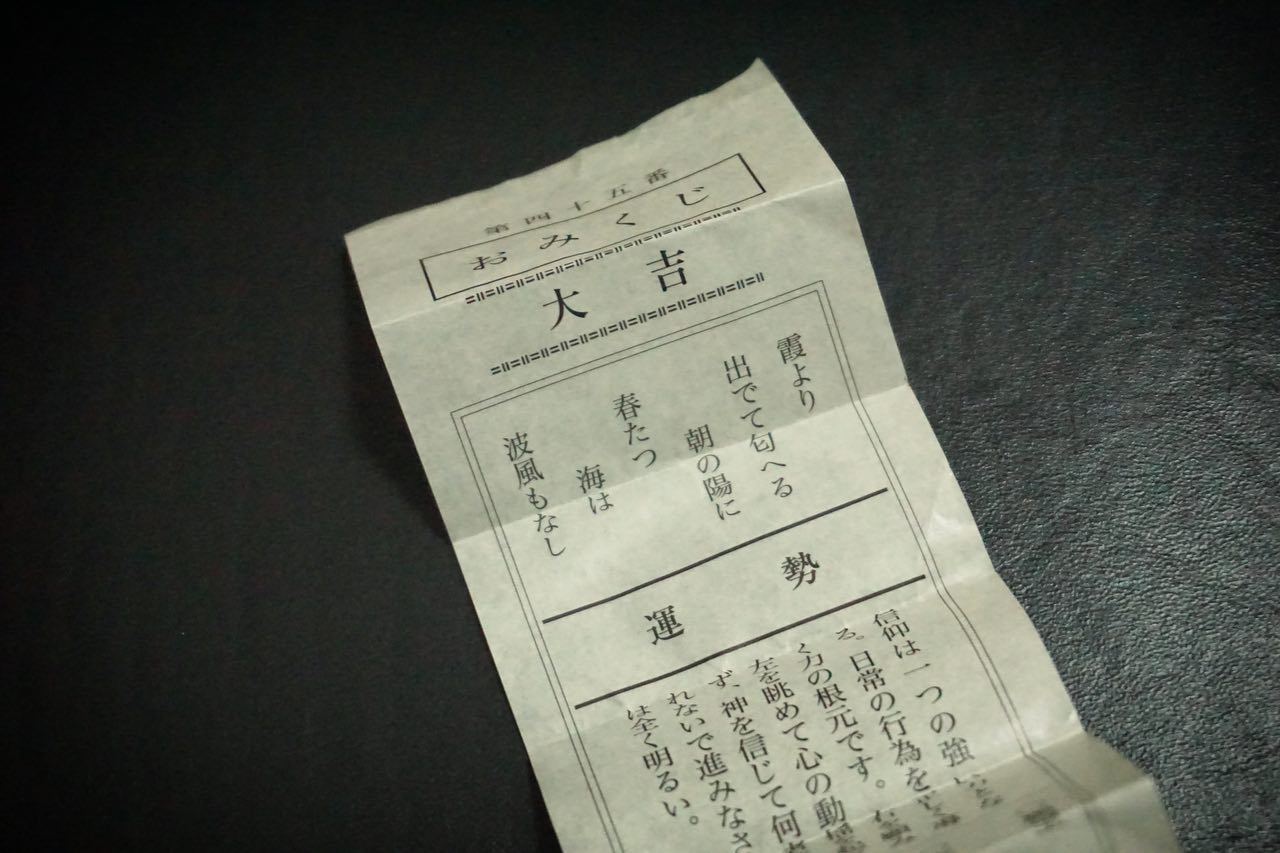 第四十五番
おみくじ
大吉
霞より
出でて匂へる
朝の陽に
春たつ
海は
波風もなし
運勢
信仰は一つの強い
る。日常の行為を
く力の根元です。
左を眺めて心の動
ず、神を信じて何
れないで進みなさ
は全く明るい。